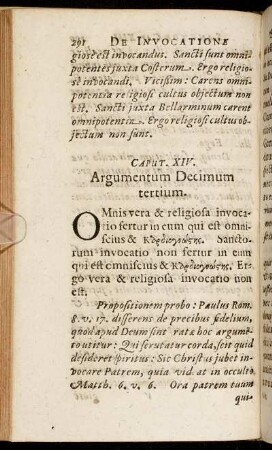 291 DE INVOCATIONE
giose est invocandus. Sancti sunt omni-
potentes juxta Costerum. Ergo religio-
se invocandi. Vicissim: Carens omni-
potentia religiosi cultus objectum non
est. Sancti juxta Bellarminum carent
omnipotentia. Ergo religiosi cultus ob-
jectum non sunt.
CAPUT. XIV.
Argumentum Decimum
tertium.
OMnis vera & religiosa invoca-
tio fertur in eum qui est omni-
scius & Καρδιογνώςης. Sancto-
rum invocatio non fertur in eum
qui est omniscius & Καρδιογνώςης. Er-
go vera & religiosa invocatio non
est.
Propositionem probo: Paulus Rom.
8. v. 17. disserens de precibus fidelium,
quod apud Deum sint ratæ hoc argumē-
to utitur: Qui scrutatur corda, scit quid
desideret spiritus: Sic Christus jubet in-
vocare Patrem, quia vid at in occulto
Matth. 6. v. 6. Ora patrem tuum
qui-